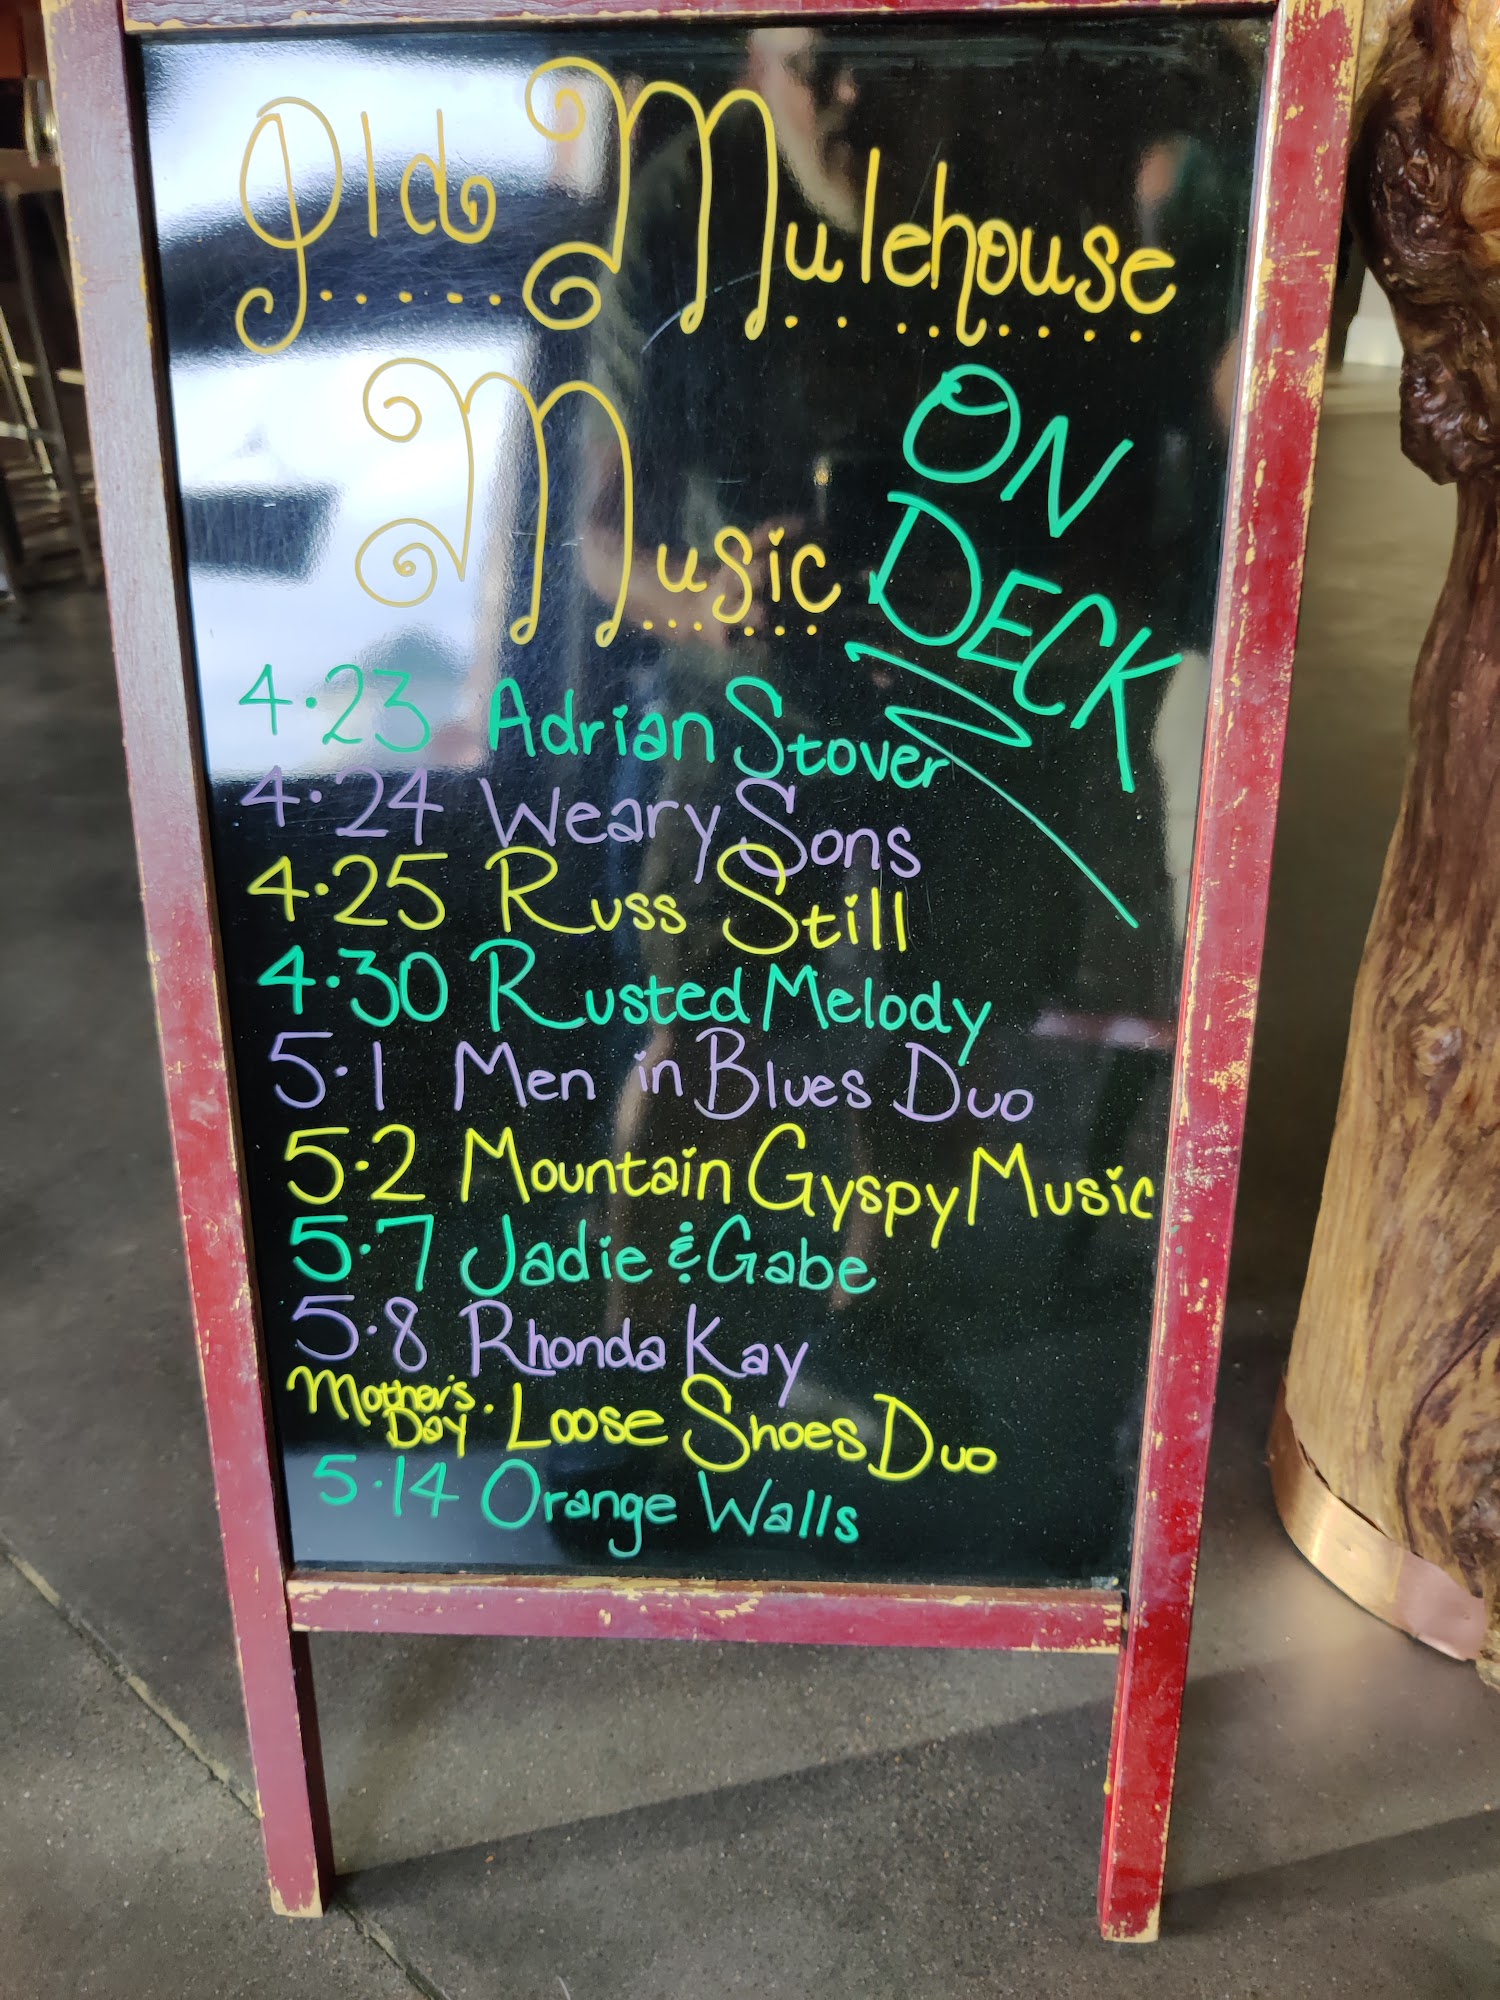 Old Mulehouse
Music
ON
DECK
4.23 Adrian Stover
4.24 Weary Sons
4.25 Russ Still
4.30 Rusted Melody
5.1 Men in Blues Duo
5.2 Mountain Gyspy Music
5.7 Jadie & Gabe
5.8 Rhonda Kay
Mother's Day . Loose Shoes Duo
5.14 Orange Walls